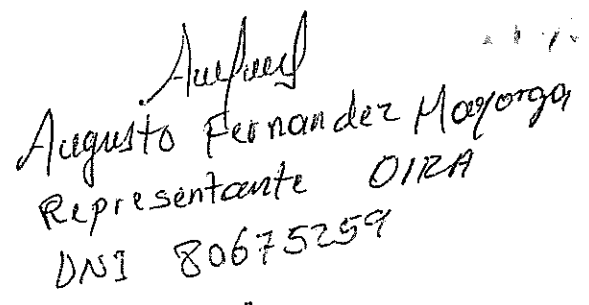 Augusto Fernandez Mayorga
Representante OIRA
DNI 80675259